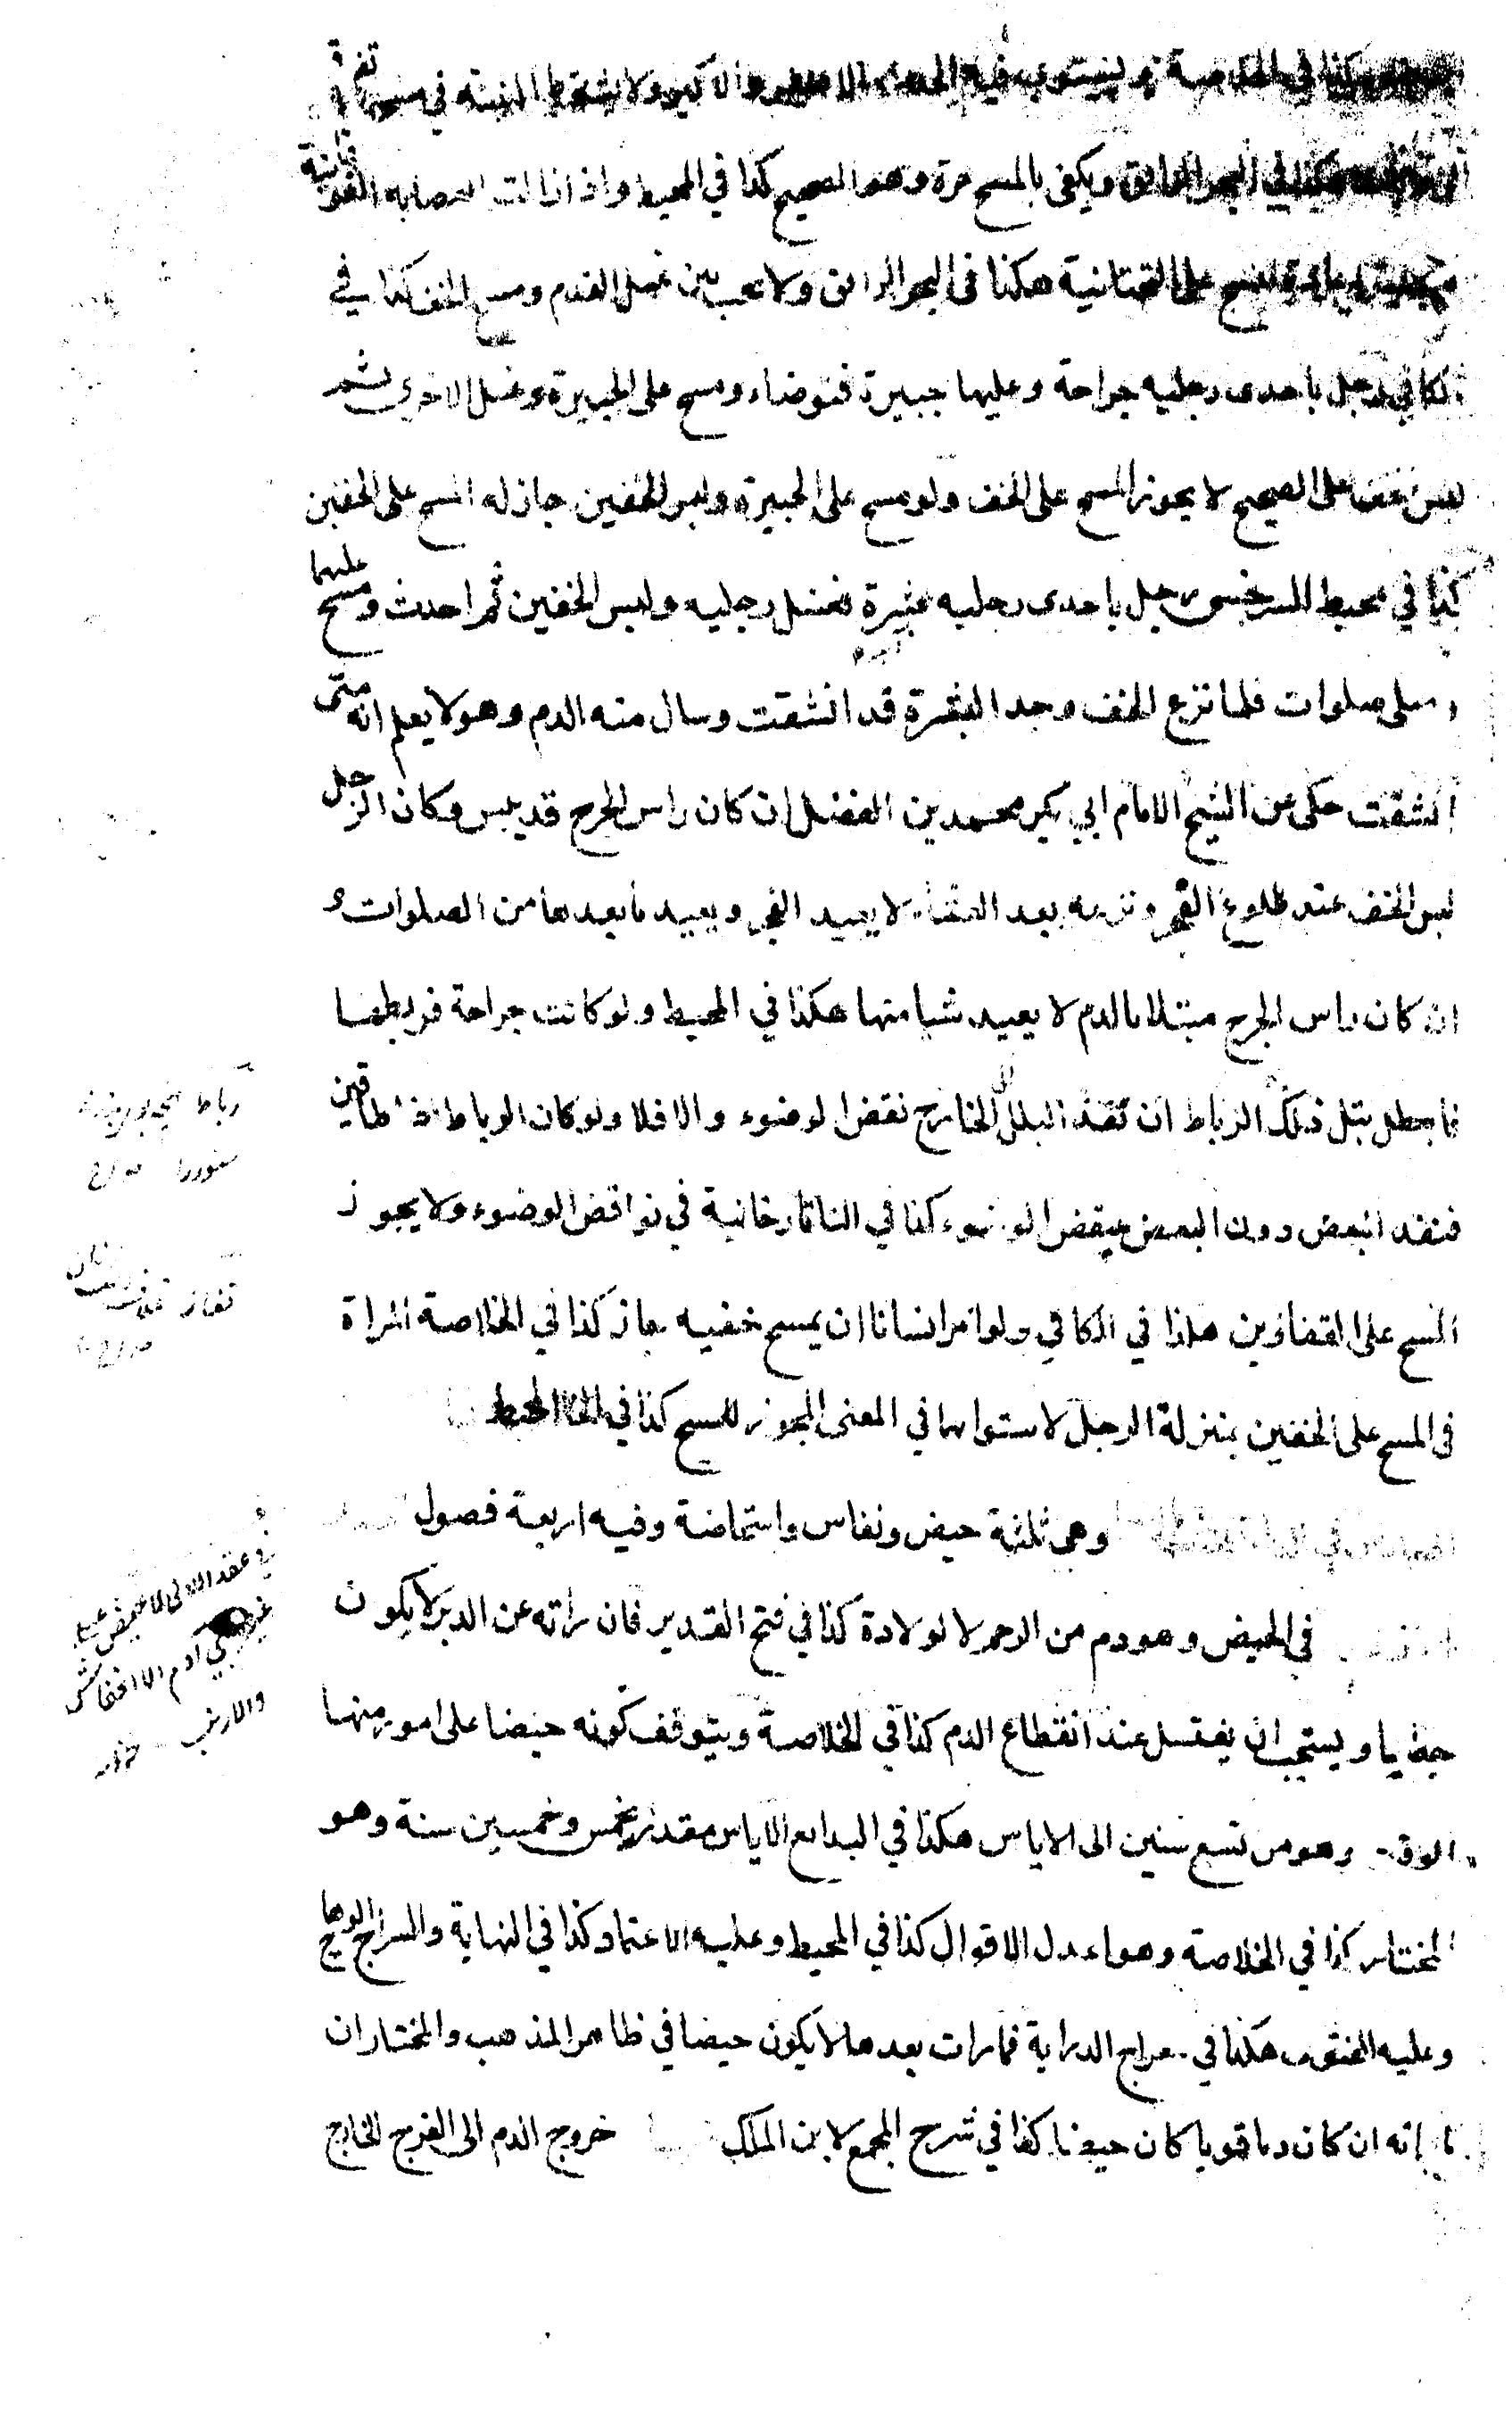 كذا في الخلاصة ويستوي فيه الحدث الاصغر والاكبر ولا يشترط النية في مسحها
هكذا في البحر الرائق ويكفي بالمسح مرة وهو الصحيح كذا في المحيط واذا زالت العصابة الفوقانية
على التحتانية هكذا في البحر الرائق ولا يجب بين غسل القدم ومسح الخف كذا في
الكافي رجل باحدى رجليه جراحة وعليها جبيرة فتوضاء ومسح على الجبيرة وغسل الاخرى ثم
لبس خفا على الصحيح لا يجوز المسح على الخف ولو مسح على الجبيرة ولبس الخفين جاز له المسح على الخفين
كذا في محيط السرخسي رجل باحدى رجليه بثرة فغسل رجليه ولبس الخفين ثم احدث ومسح عليهما
وصلى صلوات فلما نزع الخف وجد البثرة قد انشقت وسال منه الدم وهو لا يعلم انه متى
انشقت حكي عن الشيخ الامام ابي بكر محمد بن الفضل ان كان راس الجرح قد يبس وكان الرجل
لبس الخف عند طلوع الفجر ونزعه بعد العشاء لا يعيد الفجر ويعيد ما بعدها من الصلوات و
ان كان راس الجرح مبتلا بالدم لا يعيد شيا منها هكذا في المحيط ولو كانت جراحة فربطها
فابتل ذلك الرباط ان نفذ البلل الى الخارج نقض الوضوء والا فلا ولو كان الرباط ذا طاقين
فنفذ البعض دون البعض ينقض الوضوء كذا في التاتارخانية في نواقض الوضوء ولا يجوز
المسح على القفازين هكذا في الكافي ولو امر انسانا ان يمسح خفيه جاز كذا في الخلاصة المراة
في المسح على الخفين بمنزلة الرجل لاستوائهما في المعنى المجوز للمسح كذا في المحيط
وهي ثلثة حيض ونفاس واستحاضة وفيه اربعة فصول
في الحيض وهو دم من الرحم لا لولادة كذا في فتح القدير فان راته عن الدبر لا يكون
حيضا ويستحب ان يغتسل عند انقطاع الدم كذا في الخلاصة ويتوقف كونه حيضا على امور منها
الوقت وهو من تسع سنين الى الاياس هكذا في البدائع الاياس مقدر بخمس وخمسين سنة وهو
المختار كذا في الخلاصة وهو اعدل الاقوال كذا في المحيط وعليه الاعتماد كذا في النهاية والسراج الوهاج
وعليه الفتوى هكذا في معراج الدراية فما رات بعدها لا يكون حيضا في ظاهر المذهب والمختار ان
ما راته ان كان دما قويا كان حيضا كذا في شرح المجمع لابن الملك خروج الدم الى الفرج الخارج